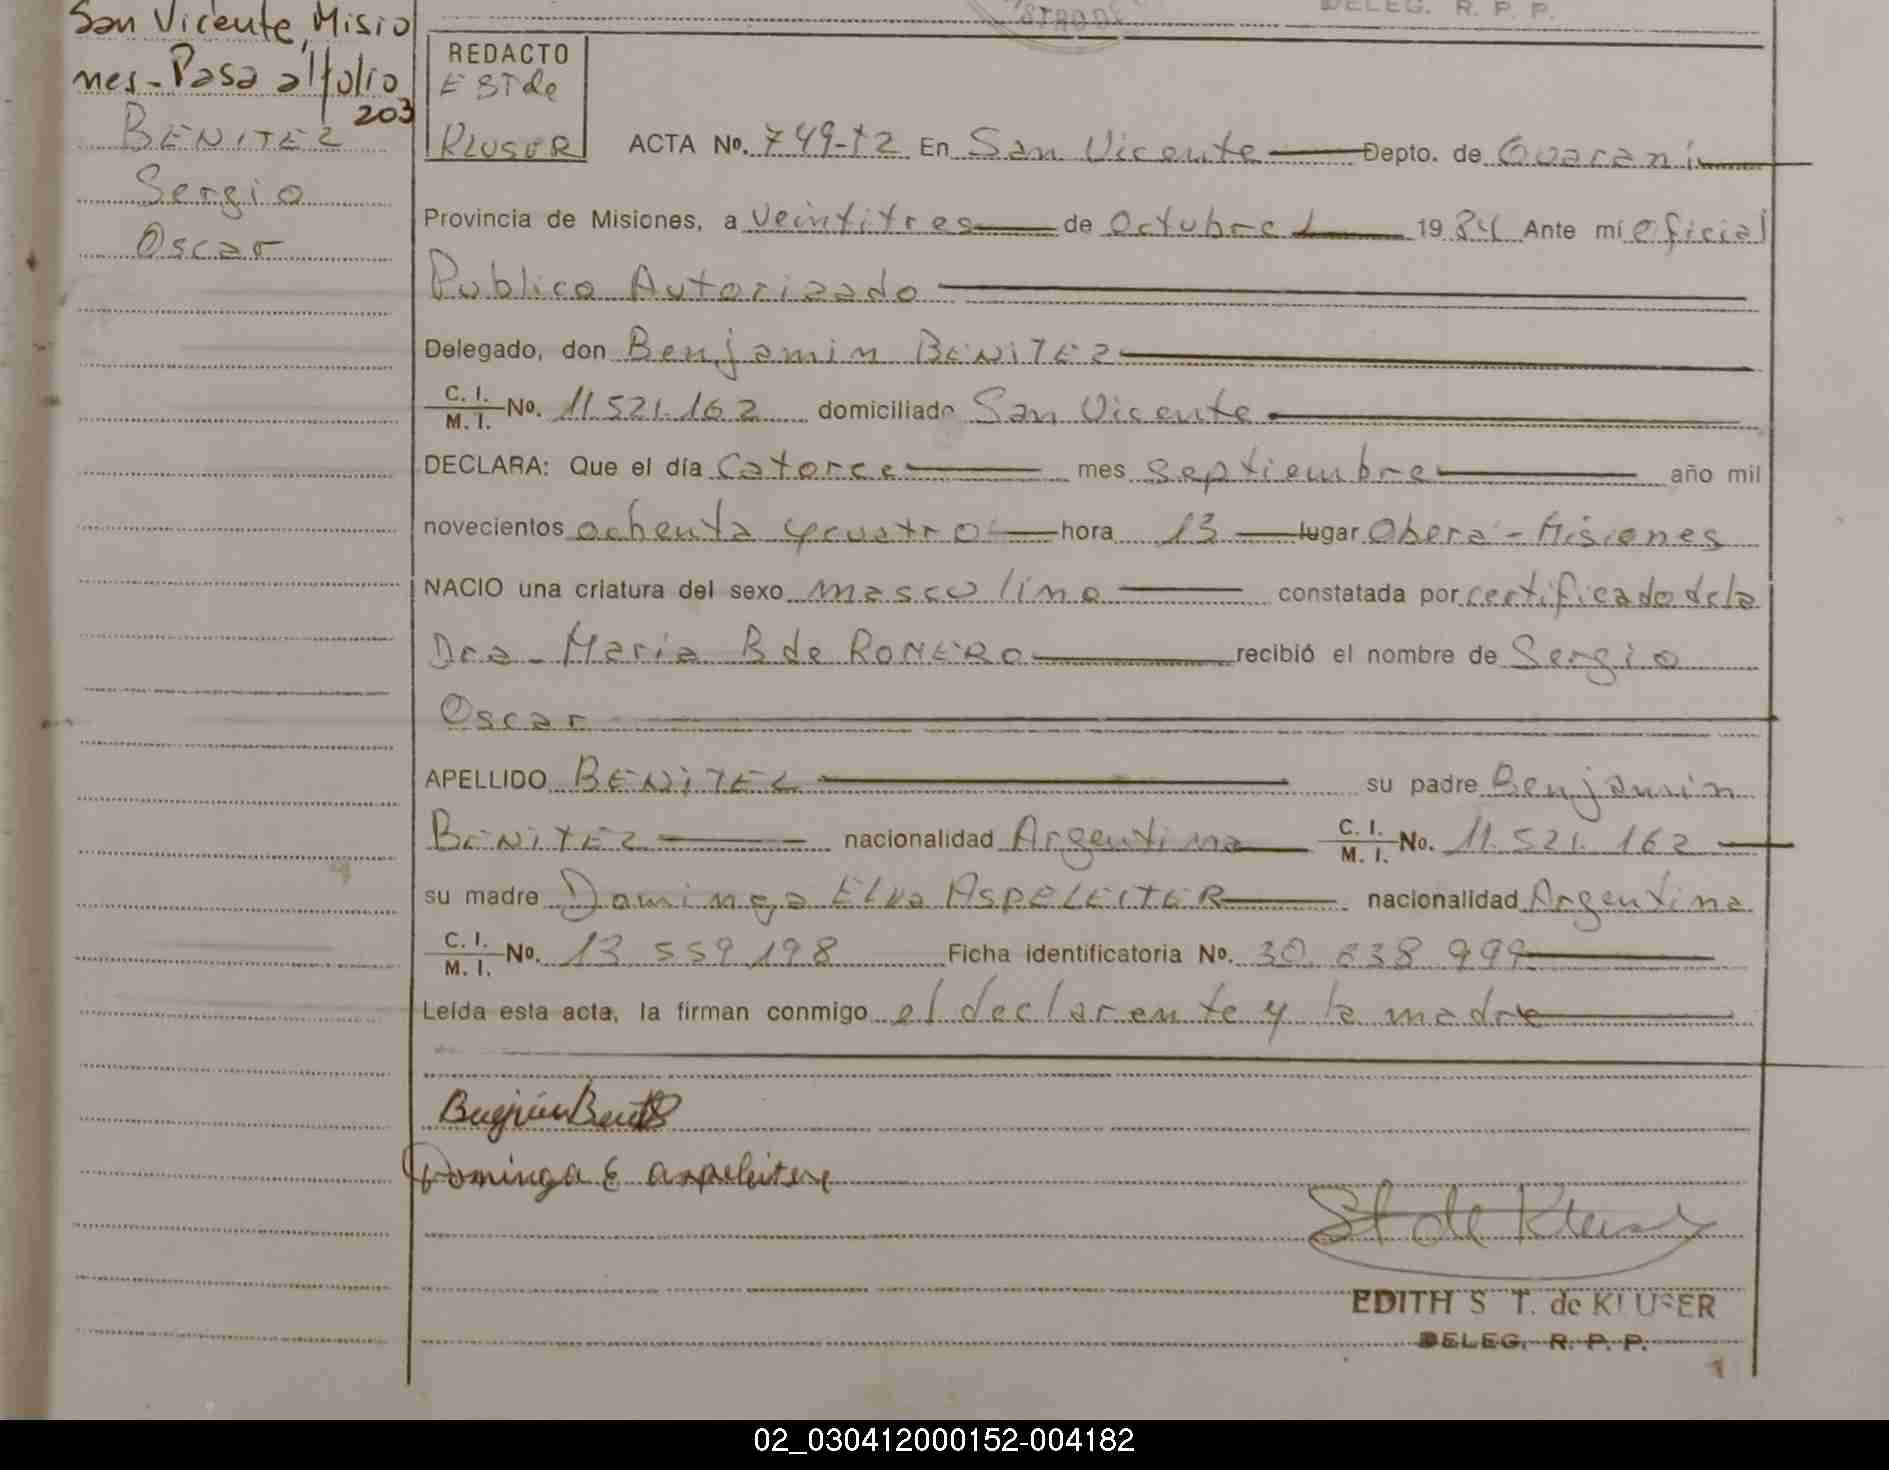 San Vicente, Misio
nes - Pasa al folio
203
BENITEZ
Sergio
Oscar
DELEG. R. P. P.
REDACTO
E ST de
KLUSER
ACTA No. 749-T2 En San Vicente Depto. de Guarani
Provincia de Misiones, a veintitres de Octubre 1984 Ante mí oficial
Publico Autorizado
Delegado, don Benjamin BENITEZ
C. I. / M. I. No. 11.521.162 domiciliado San Vicente
DECLARA: Que el día catorce mes septiembre año mil
novecientos ochenta y cuatro hora 13 lugar Oberá - Misiones
NACIO una criatura del sexo masculino constatada por certificado de la
Dra. Maria B de ROMERO recibió el nombre de Sergio
Oscar
APELLIDO BENITEZ su padre Benjamin
BENITEZ nacionalidad Argentina C. I. / M. I. No. 11.521.162
su madre Dominga Elva ASPELEITER nacionalidad Argentina
C. I. / M. I. No. 13 559 198 Ficha identificatoria No. 30 638 999
Leída esta acta, la firman conmigo el declarente y la madre
Dominga E
St de Kluser
EDITH S T. de KLUSER
DELEG. R. P. P.
02_030412000152-004182